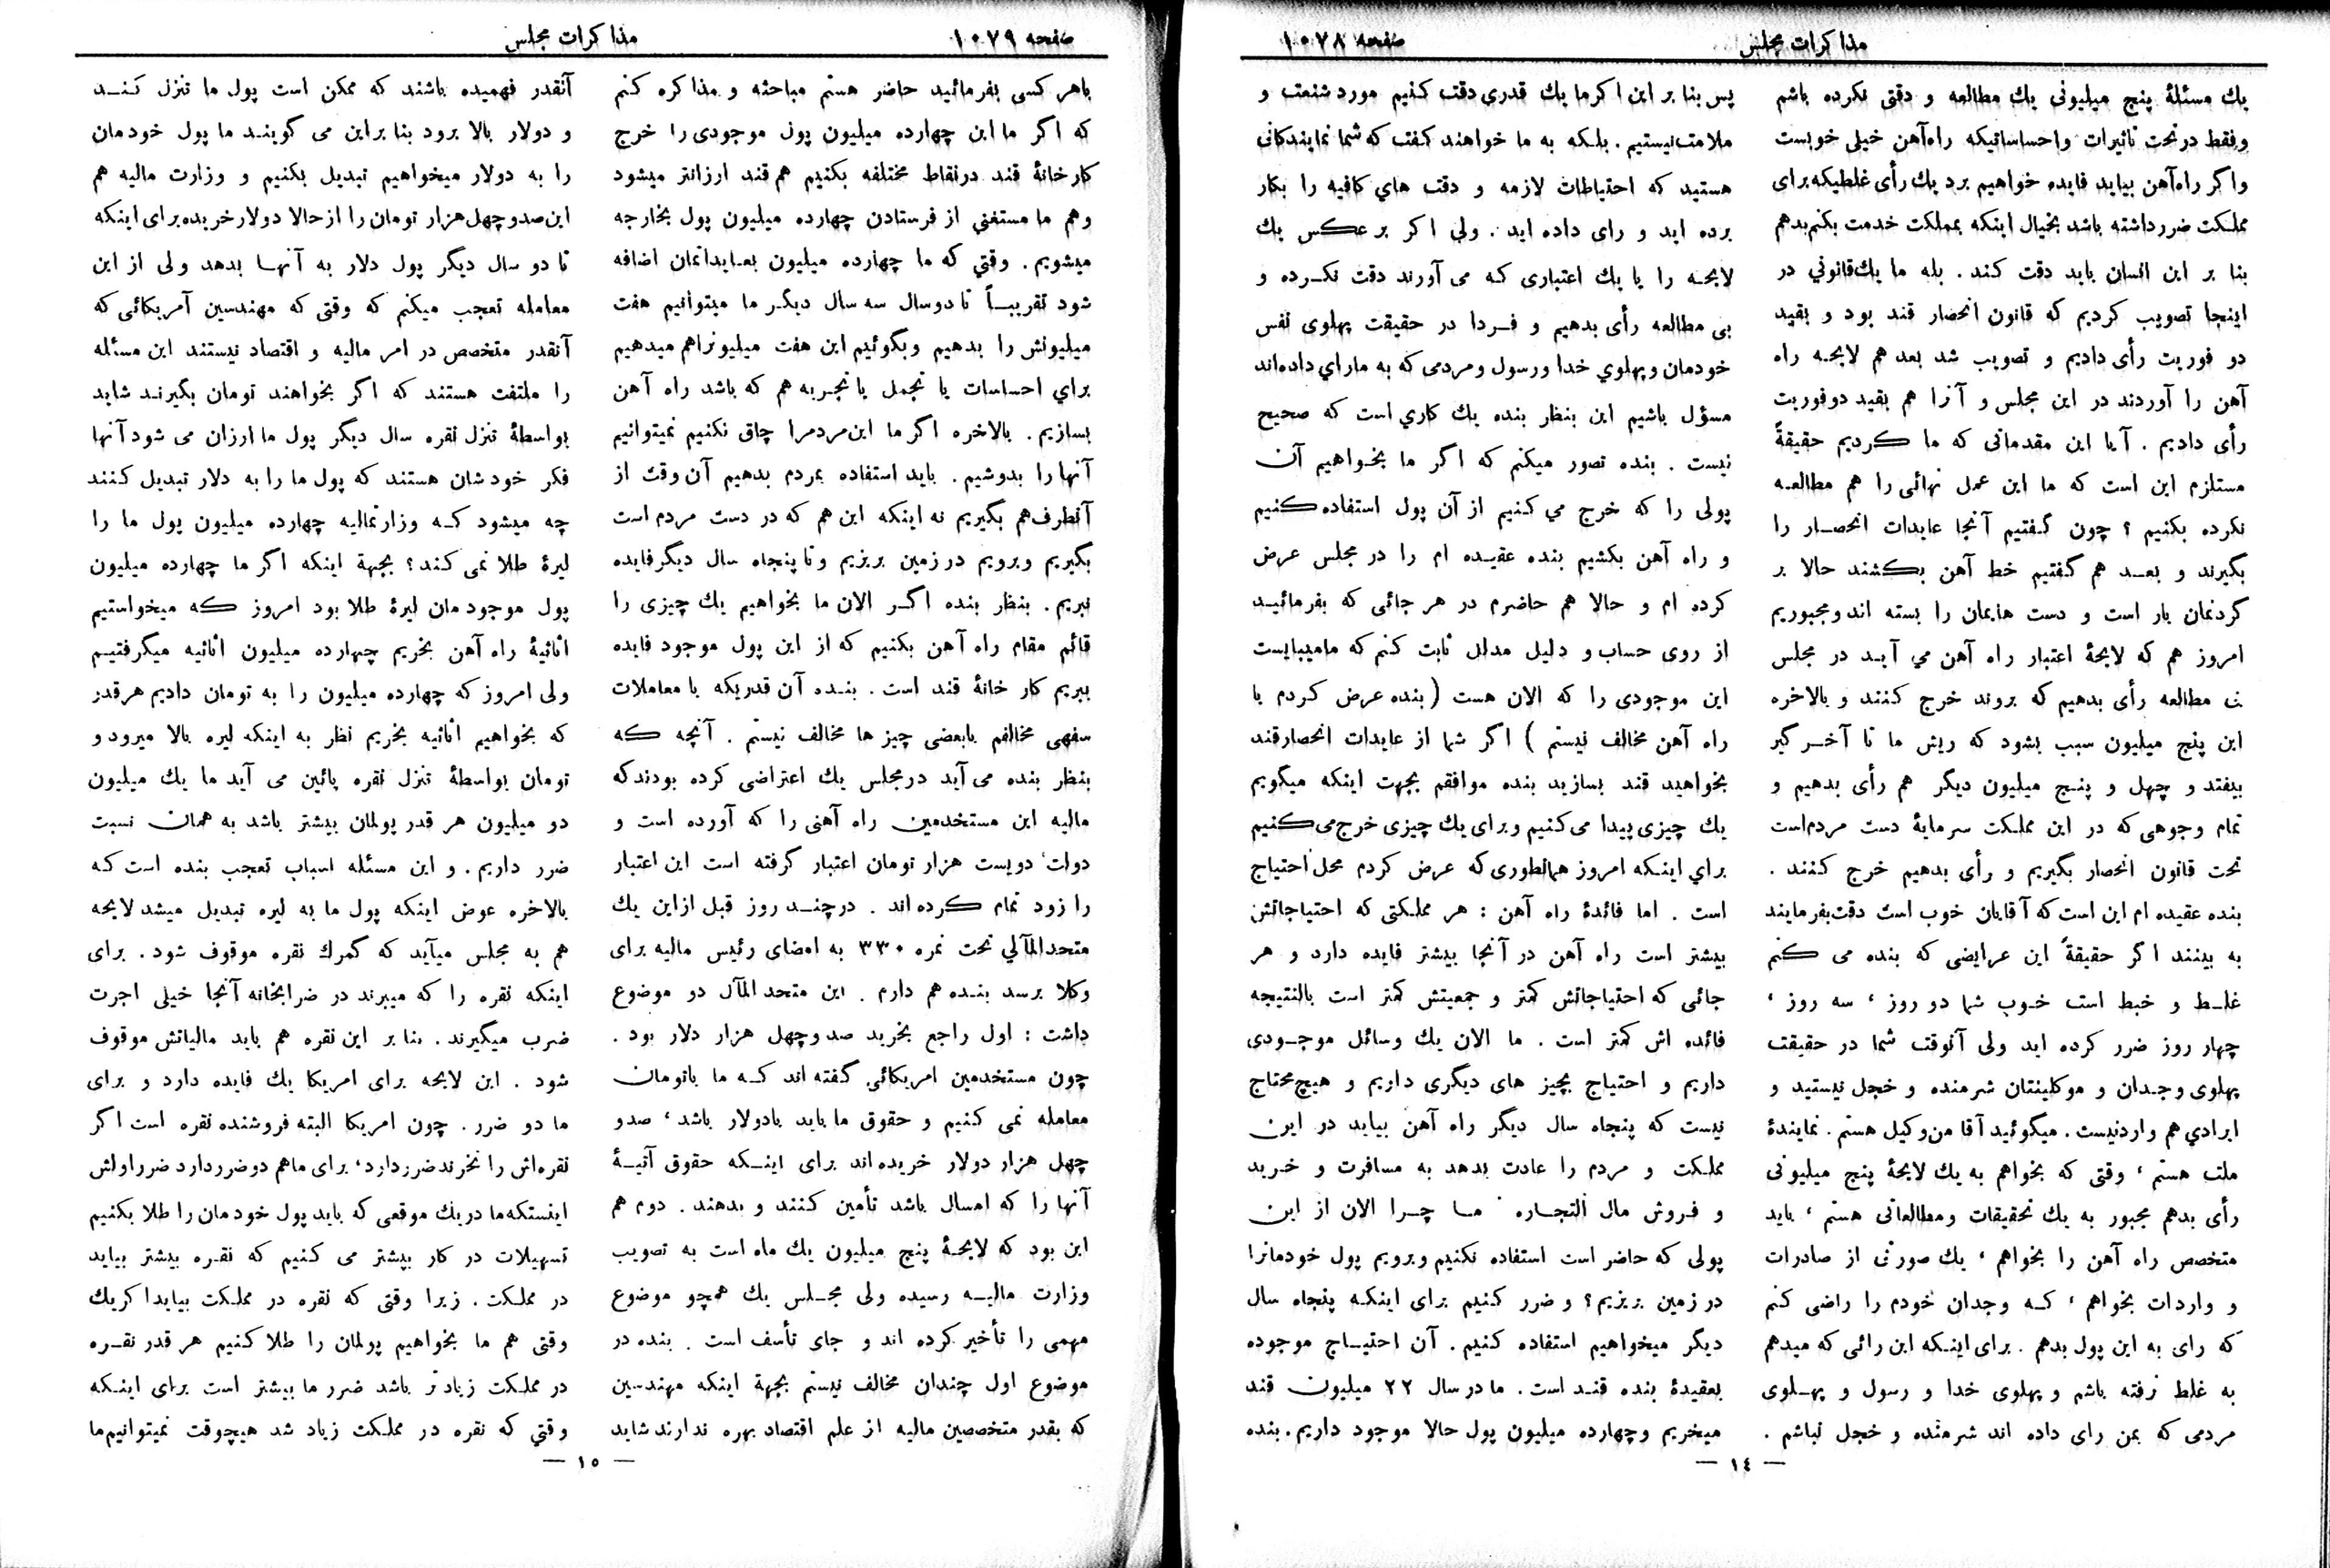 مذاکرات مجلس
صفحه ۱۰۷۸
یك مسئلهٔ پنج میلیونی یك مطالعه و دقتی نکرده باشم
وفقط در تحت تاثیرات واحساساتیکه راه‌آهن خیلی خوبست
واکر راه‌آهن بیاید فایده خواهیم برد یك رأی غلطیکه برای
مملکت ضرر داشته باشد بخیال اینکه بمملکت خدمت بکنم بدهم
بنا بر این انسان باید دقت کند . بله ما یك قانونی در
اینجا تصویب کردیم که قانون انحصار قند بود و بقید
دو فوریت رأی دادیم و تصویب شد بعد هم لایحه راه
آهن را آوردند در این مجلس و آنرا هم بقید دوفوریت
رأی دادیم . آیا این مقدماتی که ما کردیم حقیقةً
مستلزم این است که ما این عمل نهائی را هم مطالعه
نکرده بکنیم ؟ چون گفتیم آنجا عایدات انحصار را
بگیرند و بعد هم گفتیم خط آهن بکشند حالا بر
گردنمان بار است و دست هایمان را بسته اند ومجبوریم
امروز هم که لایحهٔ اعتبار راه آهن می آید در مجلس
مطالعه رأی بدهیم که بروند خرج کنند و بالاخره
این پنج میلیون سبب بشود که ریش ما تا آخر گیر
بیفتد و چهل و پنج میلیون دیگر هم رأی بدهیم و
تمام وجوهی که در این مملکت سرمایهٔ دست مردم‌است
تحت قانون انحصار بگیریم و رأی بدهیم خرج کنند .
بنده عقیده ام این است که آقایان خوب است دقت بفرمایند
به بینند اگر حقیقةً این عرایضی که بنده می کنم
غلط و خبط است خوب شما دو روز ، سه روز ،
چهار روز ضرر کرده اید ولی آنوقت شما در حقیقت
پهلوی وجدان و موکلینتان شرمنده و خجل نیستید و
ایرادی هم وارد نیست . میگوئید آقا من وکیل هستم . نمایندهٔ
ملت هستم ، وقتی که بخواهم به یك لایحهٔ پنج میلیونی
رأی بدهم مجبور به یك تحقیقات ومطالعاتی هستم ، باید
متخصص راه آهن را بخواهم ، یك صورتی از صادرات
و واردات بخواهم ، که وجدان خودم را راضی کنم
که رای به این پول بدهم . برای اینکه این رائی که میدهم
به غلط نرفته باشم و پهلوی خدا و رسول و پهلوی
مردمی که بمن رای داده اند شرمنده و خجل نباشم .
پس بنا بر این اکر ما یك قدری دقت کنیم مورد شنعت و
ملامت نیستیم . بلکه به ما خواهند کفت که شما نمایندکانی
هستید که احتیاطات لازمه و دقت هاي کافیه را بکار
برده اید و رای داده اید . ولی اکر بر عکس یك
لایحه را یا یك اعتباری که می آورند دقت نکرده و
بی مطالعه رأی بدهیم و فردا در حقیقت پهلوی نفس
خودمان وپهلوي خدا ورسول ومردمی که به ما رای داده‌اند
مسؤل باشیم این بنظر بنده یك کاري است که صحیح
نیست . بنده تصور میکنم که اگر ما بخواهیم آن
پولی را که خرج می کنیم از آن پول استفاده کنیم
و راه آهن بکشیم بنده عقیده ام را در مجلس عرض
کرده ام و حالا هم حاضرم در هر جائی که بفرمائید
از روی حساب و دلیل مدلل ثابت کنم که مامیبایست
این موجودی را که الان هست ( بنده عرض کردم با
راه آهن مخالف نیستم ) اگر شما از عایدات انحصارقند
بخواهید قند بسازید بنده موافقم بجهت اینکه میگویم
یك چیزی پیدا می کنیم وبرای یك چیزی خرج می کنیم
براي اینکه امروز همانطوری که عرض کردم محل احتیاج
است . اما فائدهٔ راه آهن : هر مملکتی که احتیاجاتش
بیشتر است راه آهن در آنجا بیشتر فایده دارد و هر
جائی که احتیاجاتش کمتر و جمعیتش کمتر است بالنتیجه
فائده اش کمتر است . ما الان یك وسائل موجودی
داریم و احتیاج بچیز های دیگری داریم و هیچ محتاج
نیست که پنجاه سال دیگر راه آهن بیاید در این
مملکت و مردم را عادت بدهد به مسافرت و خرید
و فروش مال التجاره ما چرا الان از این
پولی که حاضر است استفاده نکنیم وبرویم پول خودمانرا
در زمین بریزیم؟ و ضرر کنیم برای اینکه پنجاه سال
دیگر میخواهیم استفاده کنیم . آن احتیاج موجوده
بعقیدهٔ بنده قند است . ما در سال ۲۲ میلیون قند
میخریم وچهارده میلیون پول حالا موجود داریم . بنده
— ۱٤ —
صفحه ۱۰۷۹
مذاکرات مجلس
باهر کسی بفرمائید حاضر هستم مباحثه و مذاکره کنم
که اگر ما این چهارده میلیون پول موجودی را خرج
کارخانهٔ قند در نقاط مختلفه بکنیم هم قند ارزانتر میشود
وهم ما مستغنی از فرستادن چهارده میلیون پول بخارجه
میشویم . وقتي که ما چهارده میلیون بعایداتمان اضافه
شود تقریباً تا دوسال سه سال دیگر ما میتوانیم هفت
میلیونش را بدهیم وبگوئیم این هفت میلیونراهم میدهیم
براي احساسات یا تجمل یا تجربه هم که باشد راه آهن
بسازیم . بالاخره اگر ما این مردم را چاق نکنیم نمیتوانیم
آنها را بدوشیم . باید استفاده بمردم بدهیم آن وقت از
آنطرف‌هم بگیریم نه اینکه این هم که در دست مردم است
بگیریم وبرویم در زمین بریزیم وتا پنجاه سال دیگر فایده
نبریم . بنظر بنده اگر الان ما بخواهیم یك چیزی را
قائم مقام راه آهن بکنیم که از این پول موجود فایده
ببریم کار خانهٔ قند است . بنده آن قدریکه با معاملات
سفهی مخالفم بابعضی چیز ها مخالف نیستم . آنچه که
بنظر بنده می آید در مجلس یك اعتراضی کرده بودند که
مالیه این مستخدمین راه آهنی را که آورده است و
دولت دویست هزار تومان اعتبار گرفته است این اعتبار
را زود تمام کرده اند . در چند روز قبل از این یك
متحدالمآلي تحت نمره ۳۳۰ به امضای رئیس مالیه برای
وکلا برسد بنده هم دارم . این متحد المآل دو موضوع
داشت : اول راجع بخرید صد وچهل هزار دلار بود .
چون مستخدمین امریکائی گفته اند که ما باتومان
معامله نمی کنیم و حقوق ما باید بادولار باشد ، صدو
چهل هزار دولار خریده اند برای اینکه حقوق آتیهٔ
آنها را که امسال باشد تأمین کنند و بدهند . دوم هم
این بود که لایحهٔ پنج میلیون یك ماه است به تصویب
وزارت مالیه رسیده ولی مجلس یك همچو موضوع
مهمی را تأخیر کرده اند و جای تأسف است . بنده در
موضوع اول چندان مخالف نیستم بجهة اینکه مهندسین
که بقدر متخصصین مالیه از علم اقتصاد بهره ندارند شاید
آنقدر فهمیده باشند که ممکن است پول ما تنزل کند
و دولار بالا برود بنا براین می گویند ما پول خودمان
را به دولار میخواهیم تبدیل بکنیم و وزارت مالیه هم
این صدوچهل هزار تومان را از حالا دولار خریده برای اینکه
تا دو سال دیگر پول دلار به آنها بدهد ولی از این
معامله تعجب میکنم که وقتی که مهندسین آمریکائی که
آنقدر متخصص در امر مالیه و اقتصاد نیستند این مسئله
را ملتفت هستند که اگر بخواهند تومان بگیرند شاید
بواسطهٔ تنزل نقره سال دیگر پول ما ارزان می شود آنها
فکر خودشان هستند که پول ما را به دلار تبدیل کنند
چه میشود که وزارتمالیه چهارده میلیون پول ما را
لیرهٔ طلا نمی کند؟ بجهة اینکه اگر ما چهارده میلیون
پول موجودمان لیرهٔ طلا بود امروز که میخواستیم
اثاثیهٔ راه آهن بخریم چهارده میلیون اثاثیه میگرفتیم
ولی امروز که چهارده میلیون را به تومان دادیم هرقدر
که بخواهیم اثاثیه بخریم نظر به اینکه لیره بالا میرود و
تومان بواسطهٔ تنزل نقره پائین می آید ما یك میلیون
دو میلیون هر قدر پولمان بیشتر باشد به همان نسبت
ضرر داریم . و این مسئله اسباب تعجب بنده است که
بالاخره عوض اینکه پول ما به لیره تبدیل میشد لایحه
هم به مجلس میآید که گمرك نقره موقوف شود . برای
اینکه نقره را که میبرند در ضرابخانه آنجا خیلی اجرت
ضرب میگیرند . بنا بر این نقره هم باید مالیاتش موقوف
شود . این لایحه برای امریکا یك فایده دارد و برای
ما دو ضرر . چون امریکا البته فروشنده نقره است اگر
نقره‌اش را نخرند ضرر دارد ، برای ماهم دوضرر دارد ضرر اولش
اینستکه ما در یك موقعی که باید پول خودمان را طلا بکنیم
تسهیلات در کار بیشتر می کنیم که نقره بیشتر بیاید
در مملکت . زیرا وقتی که نقره در مملکت بیاید اکر یك
وقتی هم ما بخواهیم پولمان را طلا کنیم هر قدر نقره
در مملکت زیادتر باشد ضرر ما بیشتر است برای اینکه
وقتي که نقره در مملکت زیاد شد هیچوقت نمیتوانیم ما
— ۱۵ —